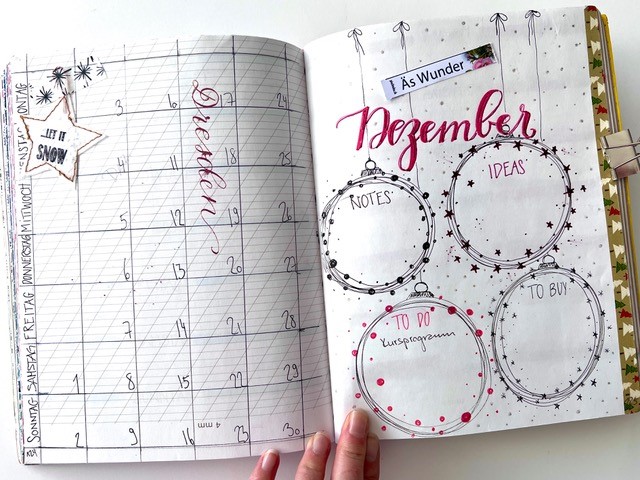 LET IT
SNOW
3 17 24
4 11 18 25
MITTWOCH 5 12 19 26
DONNERSTAG 6 13 20 27
FREITAG 7 14 21 28
SAMSTAG 1 8 15 22 29
SONNTAG 2 9 16 23 30
Dresden
4 mm
Äs Wunder
Dezember
NOTES
IDEAS
TO DO
Kursprogramm
TO BUY